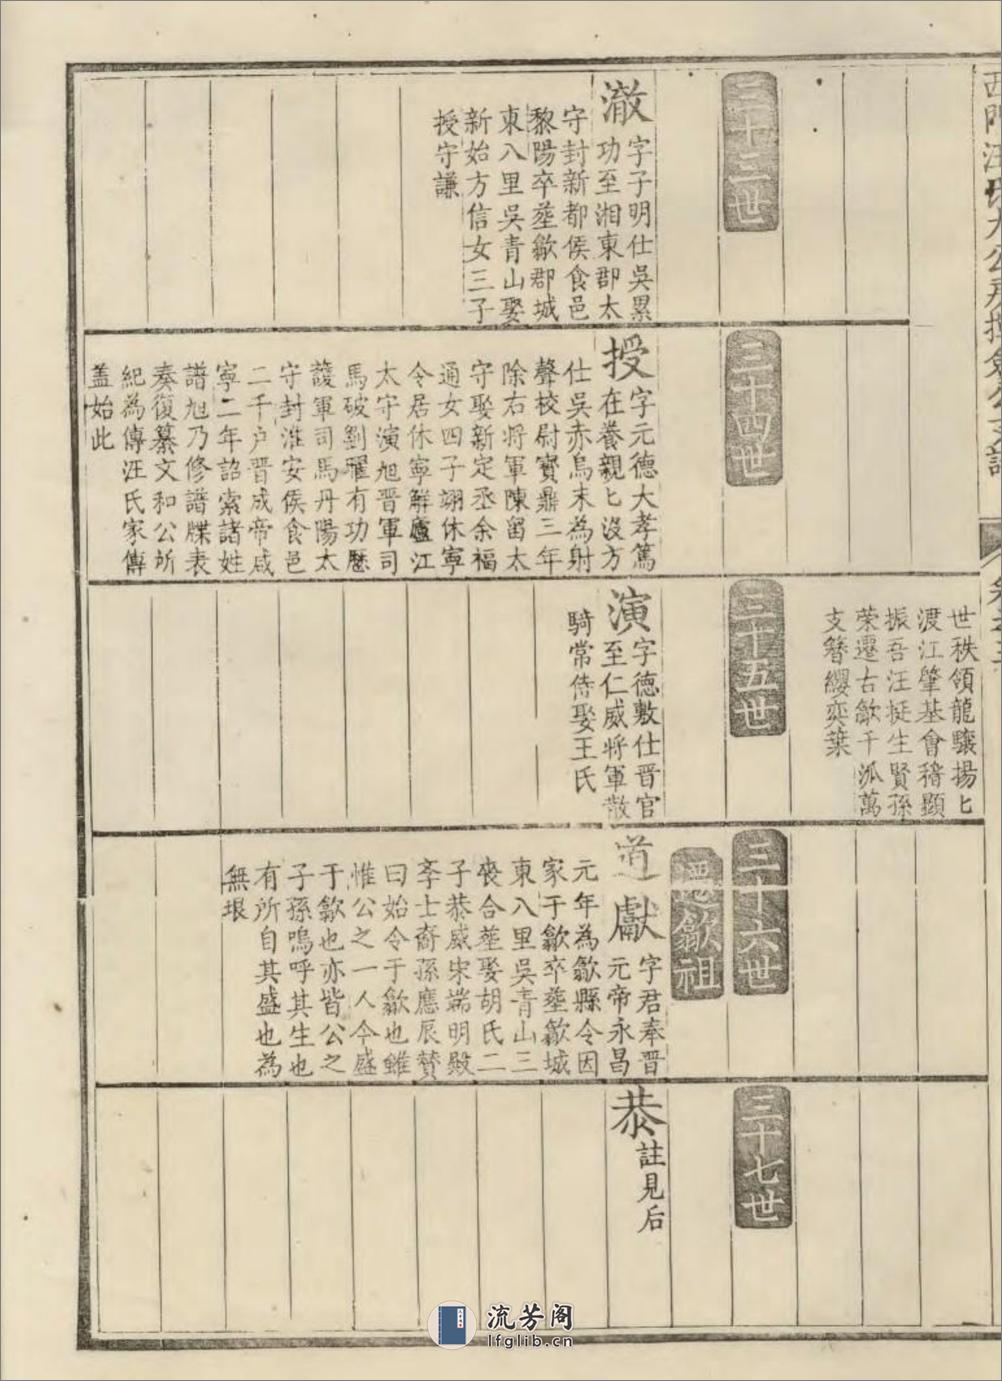 西門汪氏大公房揮僉公支譜
三十三世
澈字子明仕吳累
功至湘東郡太
守封新都侯食邑
黎陽卒塟歙郡城
東八里吳青山娶
新始方信女三子
授守謙
三十四世
授字元德大孝篤
在養親匕沒方
仕吳赤烏末為射
聲校尉寳鼎三年
除右将軍陳留太
守娶新定丞余福
通女四子翊休寧
令居休寧解廬江
太守演旭晉軍司
馬破劉曜有功歷
護軍司馬丹陽太
守封淮安侯食邑
二千户晉成帝咸
寧二年詔索諸姓
譜旭乃修譜牒表
奏復纂文和公所
紀為傳汪氏家傳
盖始此
世秩領龍驤揚匕
渡江肇基會稽顯
振吾汪挺生賢孫
荣遷古歙千派萬
支簪纓奕葉
三十五世
演字德敷仕晉官
至仁威將軍散
騎常侍娶王氏
三十六世
遷歙祖
道獻字君奉晉
元帝永昌
元年為歙縣令因
家于歙卒塟歙城
東八里吳青山三
丧合塟娶胡氏二
子恭威宋端明殿
斈士裔孫應辰贊
曰始令于歙也雖
惟公之一人今盛
于歙也亦皆公之
子孫嗚呼其生也
有所自其盛也為
無垠
三十七世
恭註見后
流芳阁
lfglib.cn